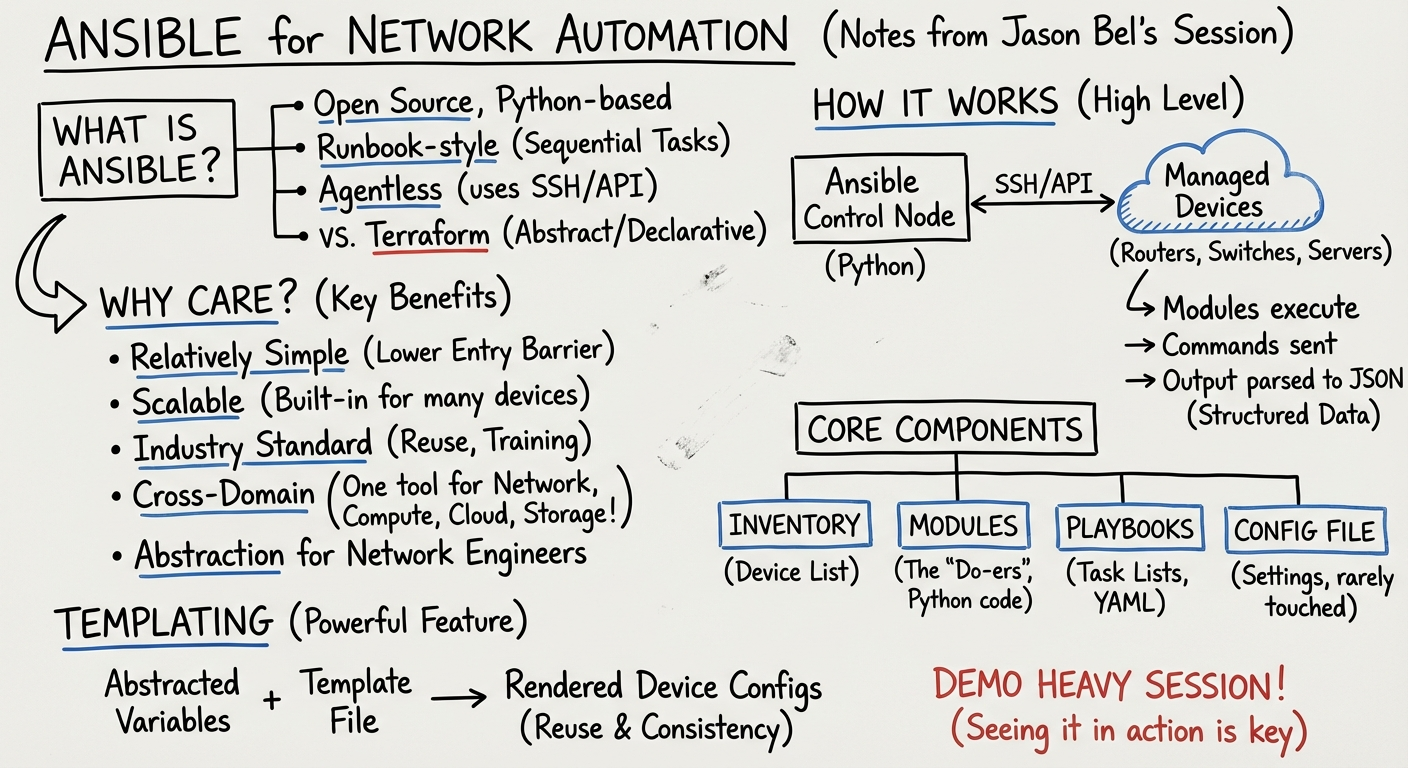 ANSIBLE for NETWORK AUTOMATION (Notes from Jason Bel's Session)
WHAT IS
ANSIBLE?
Open Source, Python-based
Runbook-style (Sequential Tasks)
Agentless (uses SSH/API)
vs. Terraform (Abstract/Declarative)
WHY CARE? (Key Benefits)
• Relatively Simple (Lower Entry Barrier)
• Scalable (Built-in for many devices)
• Industry Standard (Reuse, Training)
• Cross-Domain (One tool for Network,
Compute, Cloud, Storage!)
• Abstraction for Network Engineers
TEMPLATING (Powerful Feature)
Abstracted
Variables
+
Template
File
→
Rendered Device Configs
(Reuse & Consistency)
HOW IT WORKS (High Level)
Ansible
Control Node
(Python)
SSH/API
Managed
Devices
(Routers, Switches, Servers)
→ Modules execute
→ Commands sent
→ Output parsed to JSON
(Structured Data)
CORE COMPONENTS
INVENTORY
(Device List)
MODULES
(The "Do-ers",
Python code)
PLAYBOOKS
(Task Lists,
YAML)
CONFIG FILE
(Settings, rarely
touched)
DEMO HEAVY SESSION!
(Seeing it in action is key)